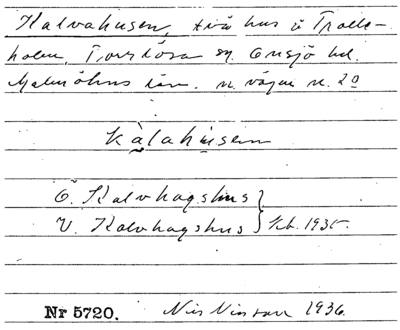 Kalvahusen, två hus å Trolle-
holm, Torrlösa sn. Onsjö hd.
Malmöhus län. n. vägen n. 20
kàlahúsen
Ö. Kalvhagshus
V. Kalvhagshus } Kb. 1935.
Nr 5720. Nils Nilsson 1936.